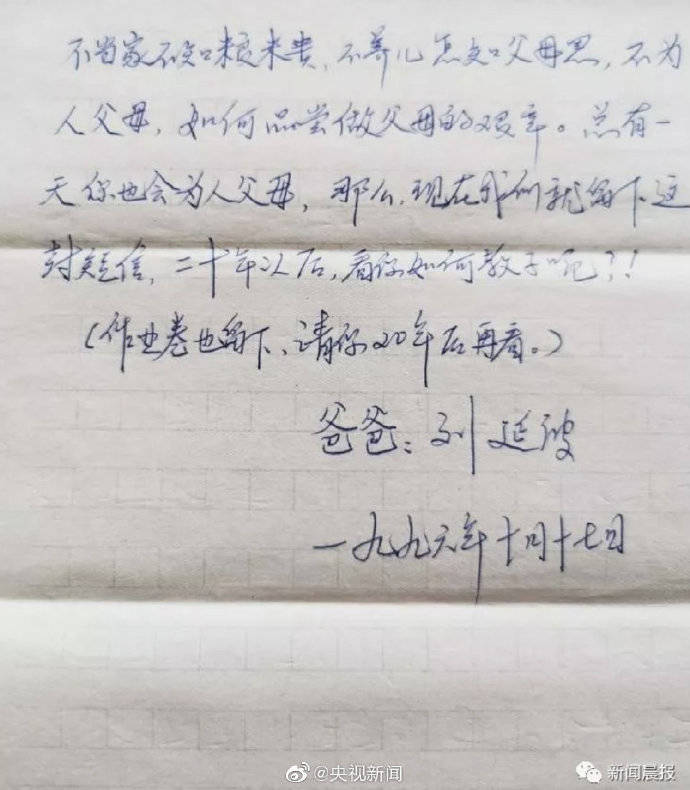 不当家不知粮米贵，不养儿怎知父母恩，不为
人父母，如何品尝做父母的艰辛。总有一
天你也会为人父母，那么，现在我们就留下这
封短信，二十年以后，看你如何教子呢？！
（作业卷也留下、请你20年后再看。）
爸爸：刘延波
一九九六年十月十七日
@央视新闻
新闻晨报